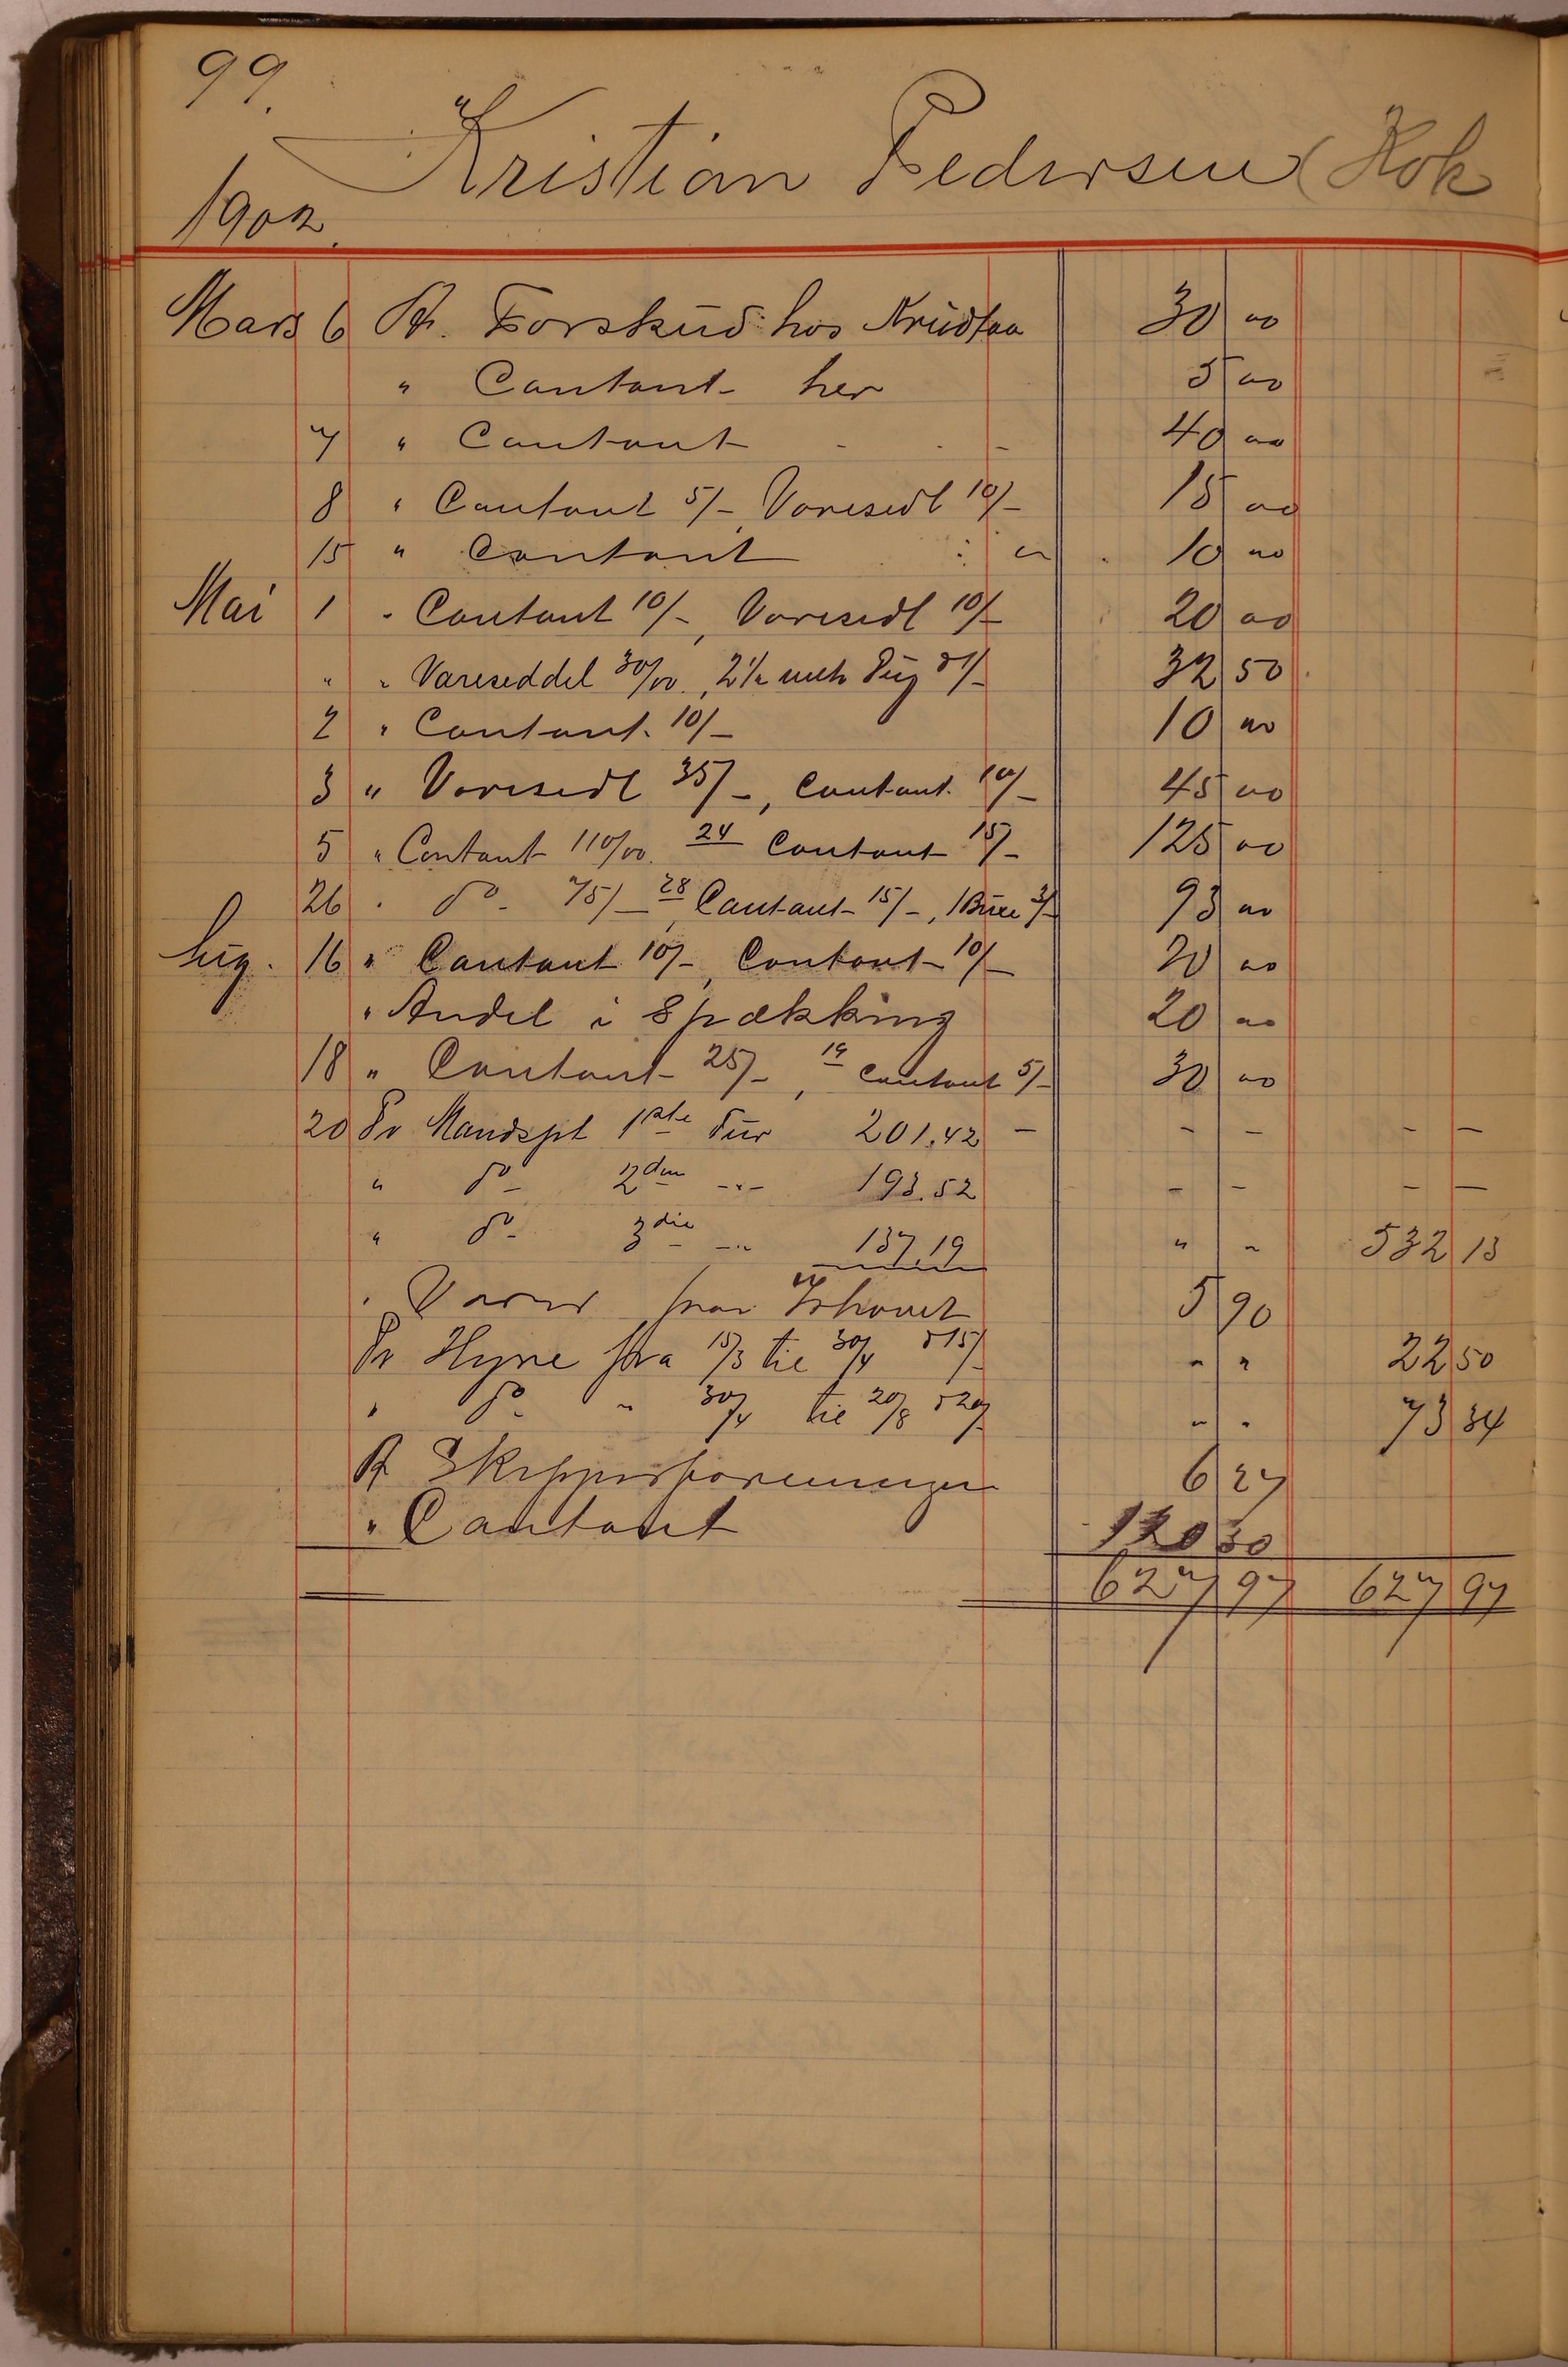 99.
Kristian Pedersen (Kok
1902.
Mars 6 At. Forskud hos 30 00
" Contant her 5 00
7 " Contant - - - 40 00
8 " Contant 5/-, Varesedl 10/- 15 00
15 " Contant : " 10 00
Mai 1 " Contant 10/-, Varesedl 10/- 20 00
" " Vareseddel 30/00., 2½ meter Tüg á 1/- 32 50
2 " Contant. 10/- 10 00
3 " Varesedl 35/-, Contant. 10/- 45 00
5 " Contant 110/00. 24 Contant 15/- 125 00
26 " do- 75/- 28, Contant 15/-, 1 Buxe 3/- 93 00
Aug. 16 " Contant 10/-, Contant 10/- 20 00
" Andel i Spækking 20 00
18 " Contant 25/-, 19 Contant 5/- 30 00
20 Pr Mandspt 1ste Tür 201.42 - - - - -
" do- 2den -"- 193.52 - - - -
" do- 3die -"- 137.19 " " 532 13
" Varer fra Ishavet 5 90
Pr Hyre fra 15/3 til 30/4 á 15/- " " 22 50
" do " 30/4 til 20/8 á 20/- " " 73 34
At Skipperforeningen 6 27
" Contant 120 30
627 97 627 97